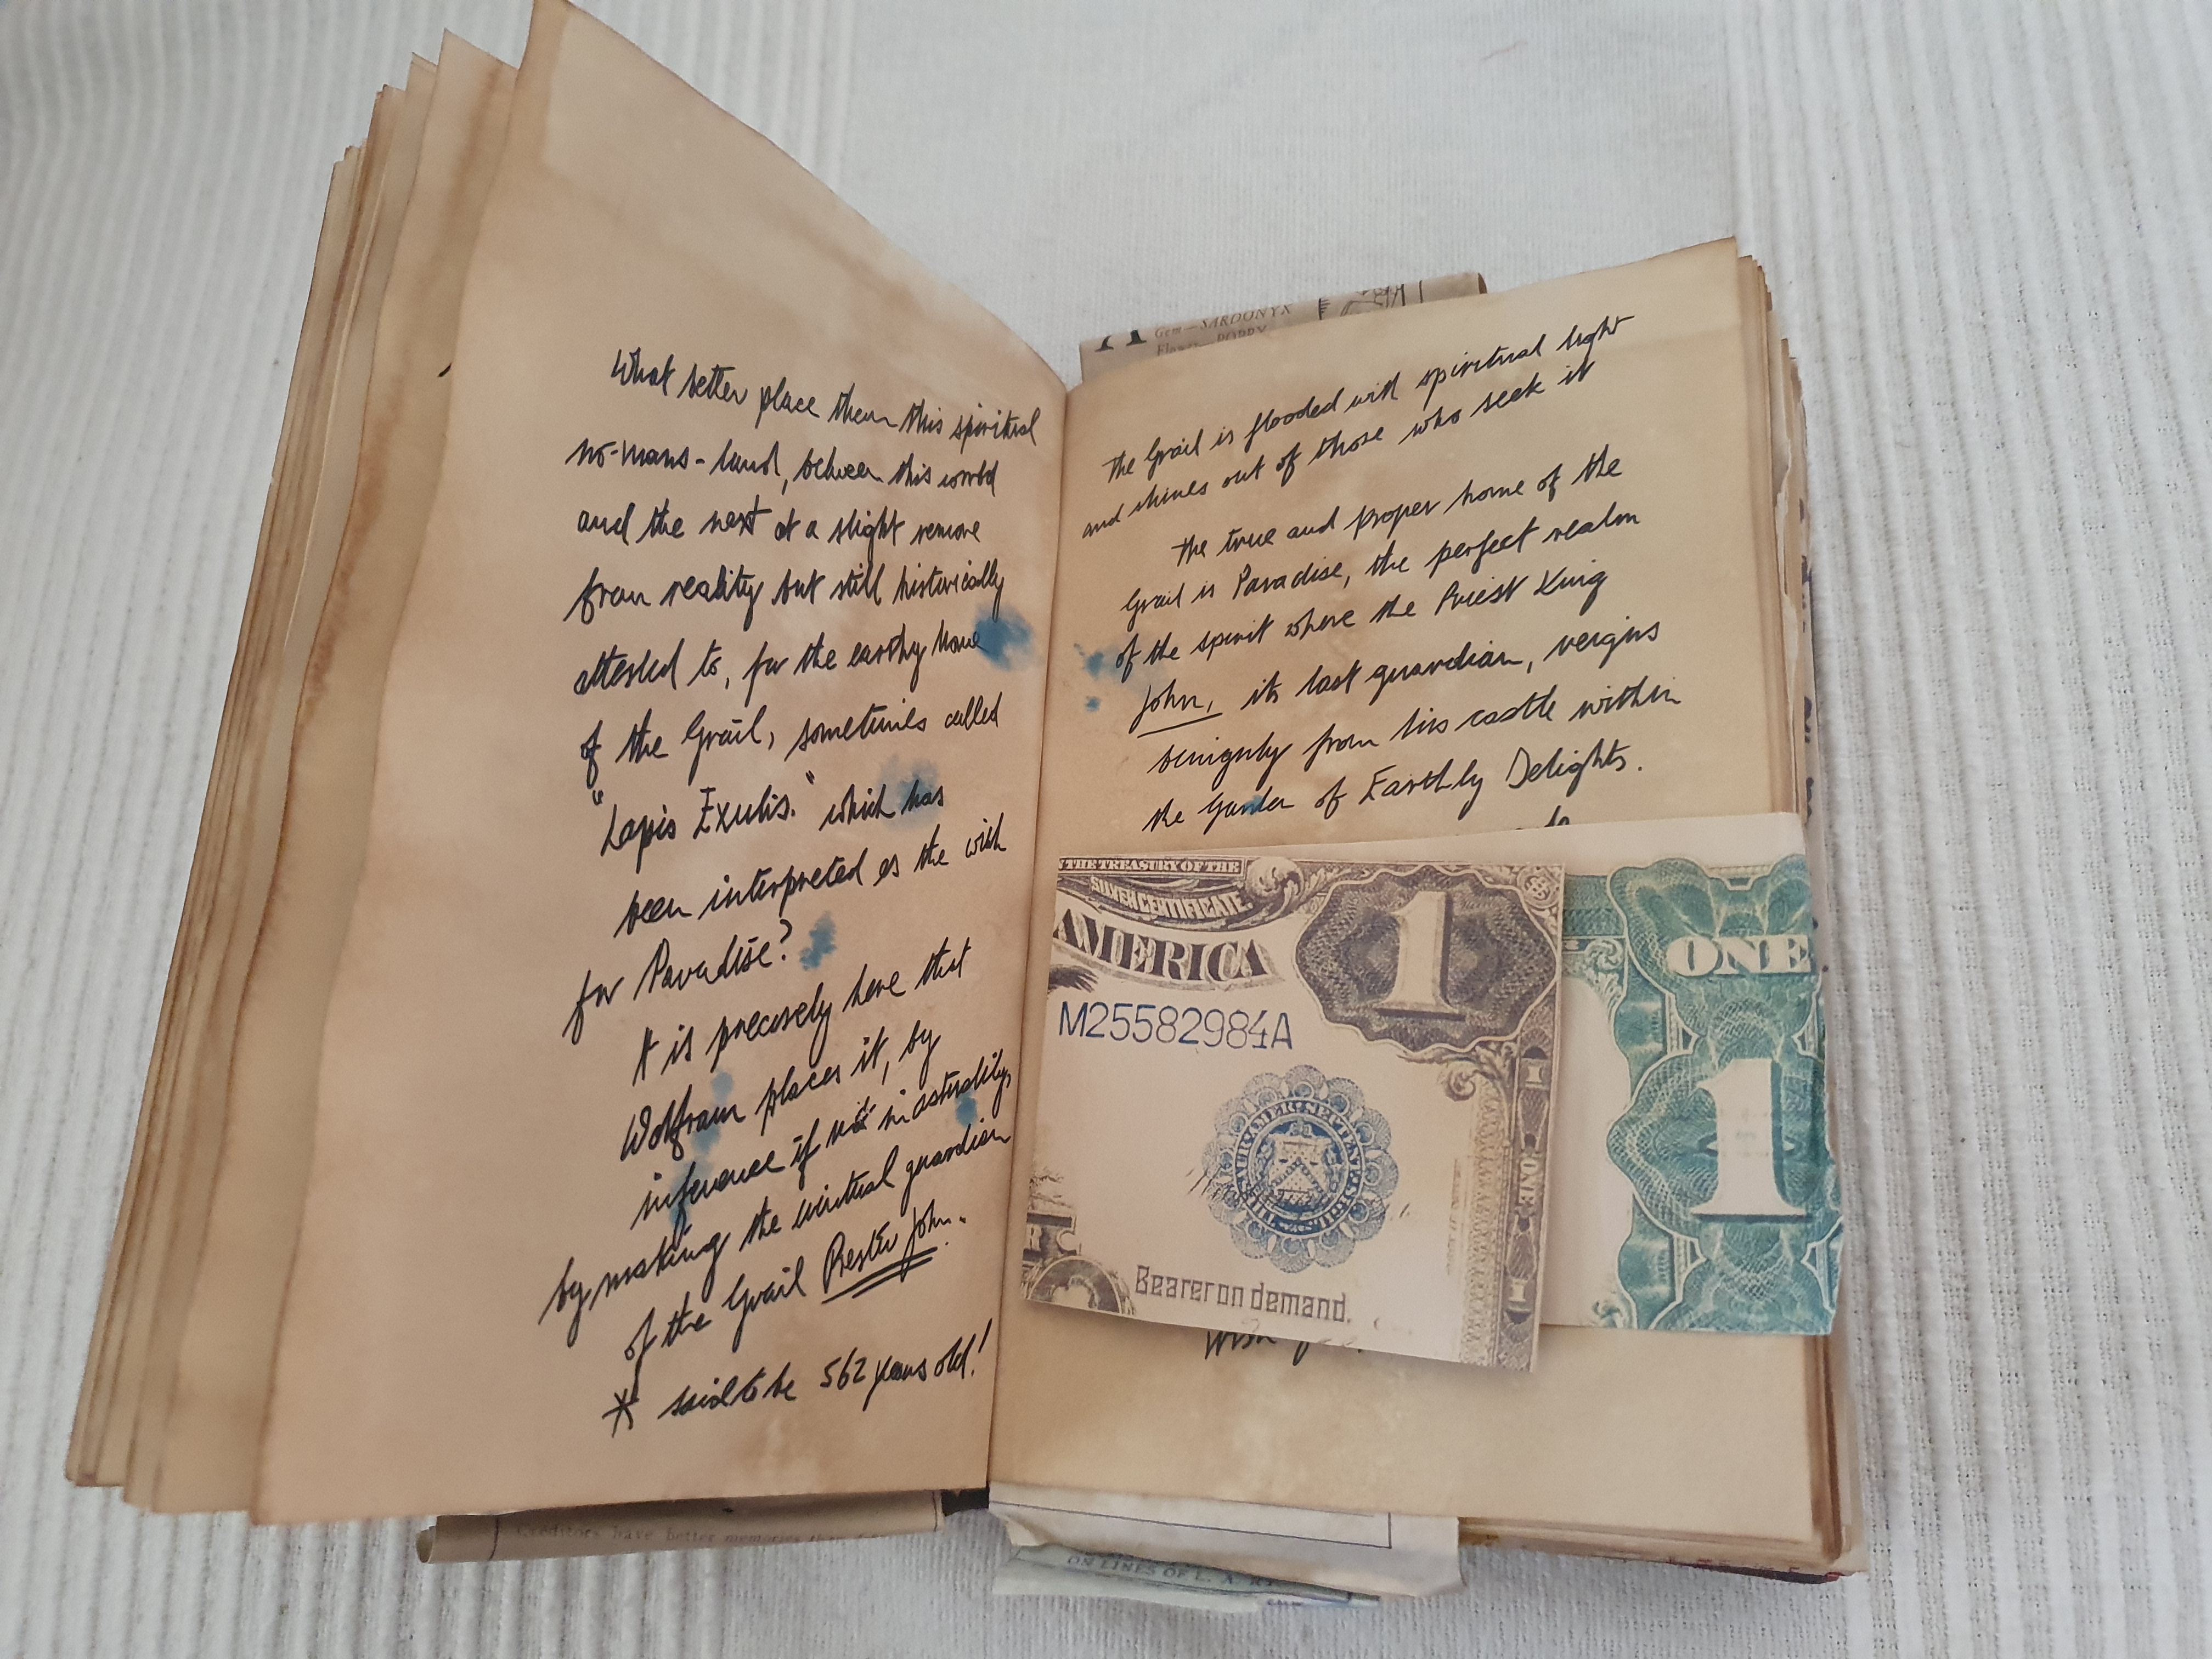 What better place then this spiritual
no-mans-land, between this world
and the next at a slight remove
from reality but still historically
attested to, for the earthy home
of the Grail, sometimes called
"Lapis Exulis." which has
been interpreted as the wish
for Paradise?
It is precisely here that
Wolfram places it, by
inference if not in actuality,
by making the virtual guardian
of the Grail Prester John.
* said to be 562 years old!
Creditors have better memories than
Gem—SARDONYX
Flower—POPPY
The Grail is flooded with spiritual light
and shines out of those who seek it
The true and proper home of the
Grail is Paradise, the perfect realm
of the spirit where the Priest King
John, its last guardian, reigns
benignly from his castle within
the Garden of Earthly Delights.
THE TREASURY OF THE
SILVER CERTIFICATE
AMERICA
1
M25582984A
THESAUR. AMER. SEPTENT. SIGIL.
Bearer on demand.
1
ONE
1
ONE
1
Wish
ON LINES OF L. A. R